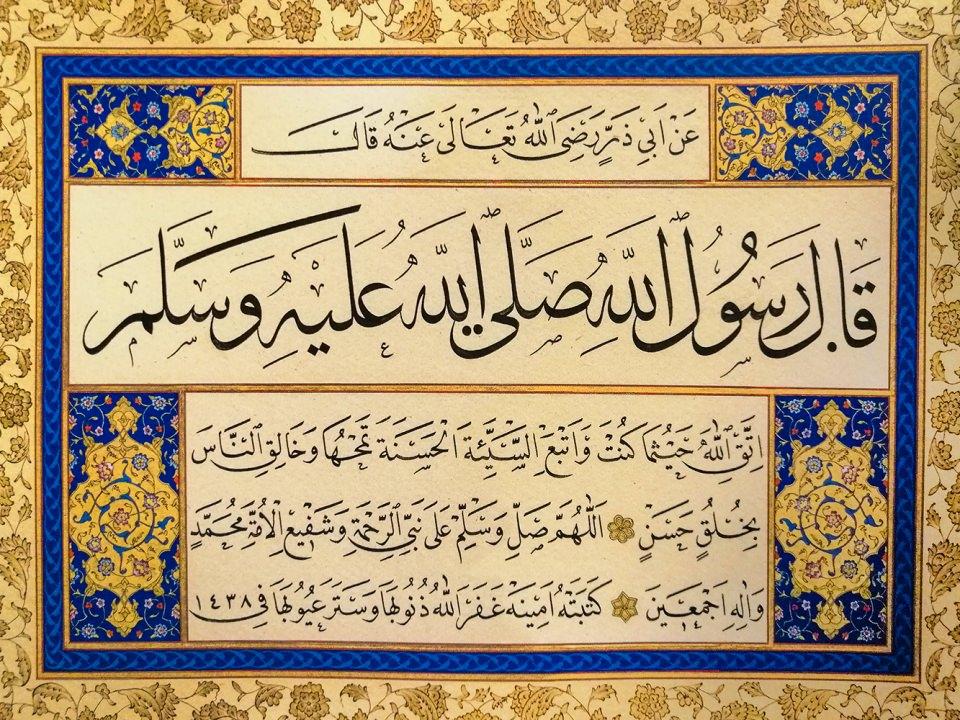 عَنْ اَبِي ذَرٍّ رَضِيَ اللهُ تَعَالَى عَنْهُ قَالَ
قَالَ رَسُولُ اللهِ صَلَّى اللهُ عَلَيْهِ وَسَلَّمَ
اِتَّقِ اللهَ حَيْثُمَا كُنْتَ وَاَتْبِعِ السَّيِّئَةَ الْحَسَنَةَ تَمْحُهَا وَخَالِقِ النَّاسَ
بِخُلُقٍ حَسَنٍ اَللّٰهُمَّ صَلِّ وَسَلِّمْ عَلَى نَبِيِّ الرَّحْمَةِ وَشَفِيعِ الْاُمَّةِ مُحَمَّدٍ
وَاٰلِهِ اَجْمَعِينَ كَتَبَتْهُ اَمِينَه غَفَرَ اللهُ ذُنُوبَهَا وَسَتَرَ عُيُوبَهَا فِي ١٤٣٨